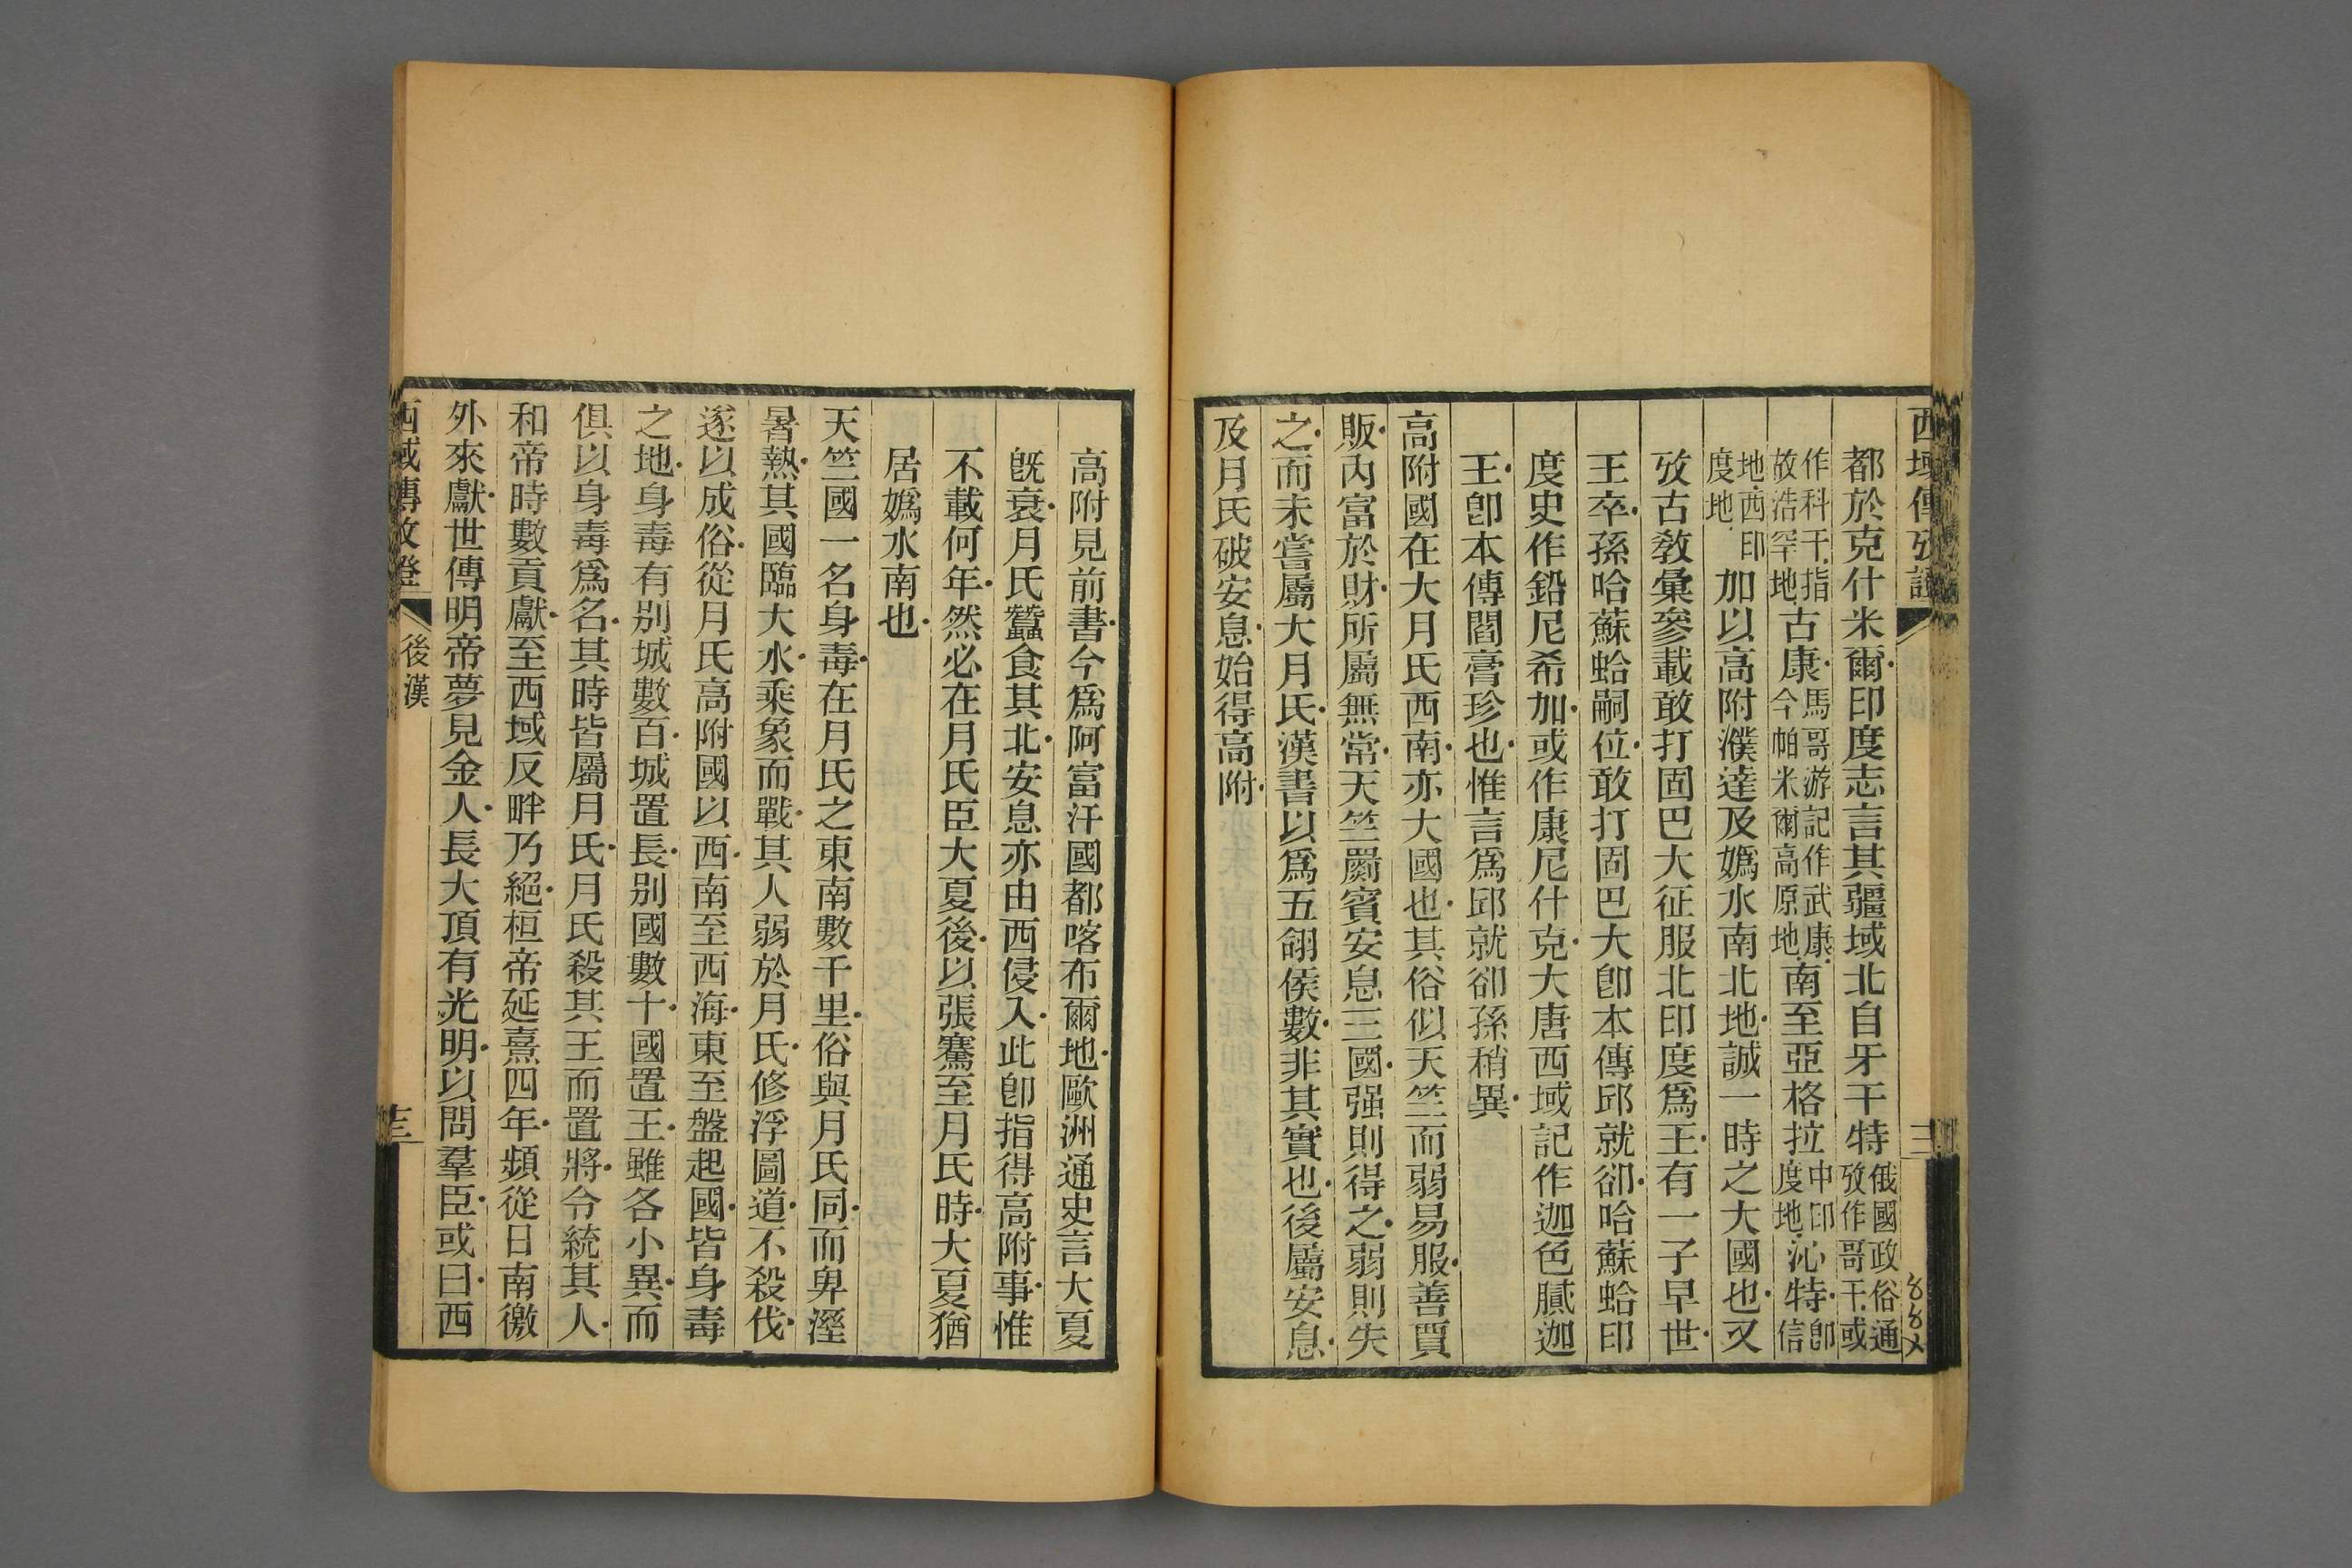 西域傳攷證
三
都於克什米爾印度志言其疆域北自牙干特俄國政俗通攷作哥干或
作科干指故浩罕地古康馬哥游記作武康今帕米爾高原地南至亞格拉中印度地沁特卽信
地西印度地加以高附濮達及嬀水南北地誠一時之大國也又
攷古敎彙參載敢打固巴大征服北印度爲王有一子早世
王卒孫哈蘇蛤嗣位敢打固巴大卽本傳邱就卻哈蘇蛤印
度史作鉛尼希加或作康尼什克大唐西域記作迦色膩迦
王卽本傳閻膏珍也惟言爲邱就卻孫稍異
高附國在大月氏西南亦大國也其俗似天竺而弱易服善賈
販內富於財所屬無常天竺罽賓安息三國强則得之弱則失
之而未嘗屬大月氏漢書以爲五翎侯數非其實也後屬安息
及月氏破安息始得高附
高附見前書今爲阿富汗國都喀布爾地歐洲通史言大夏
旣衰月氏蠶食其北安息亦由西侵入此卽指得高附事惟
不載何年然必在月氏臣大夏後以張騫至月氏時大夏猶
居嬀水南也
天竺國一名身毒在月氏之東南數千里俗與月氏同而卑溼
暑熱其國臨大水乘象而戰其人弱於月氏修浮圖道不殺伐
遂以成俗從月氏高附國以西南至西海東至盤起國皆身毒
之地身毒有別城數百城置長別國數十國置王雖各小異而
俱以身毒爲名其時皆屬月氏月氏殺其王而置將令統其人
和帝時數貢獻至西域反畔乃絕桓帝延熹四年頻從日南徼
外來獻世傳明帝夢見金人長大頂有光明以問羣臣或曰西
西域傳攷證
後漢